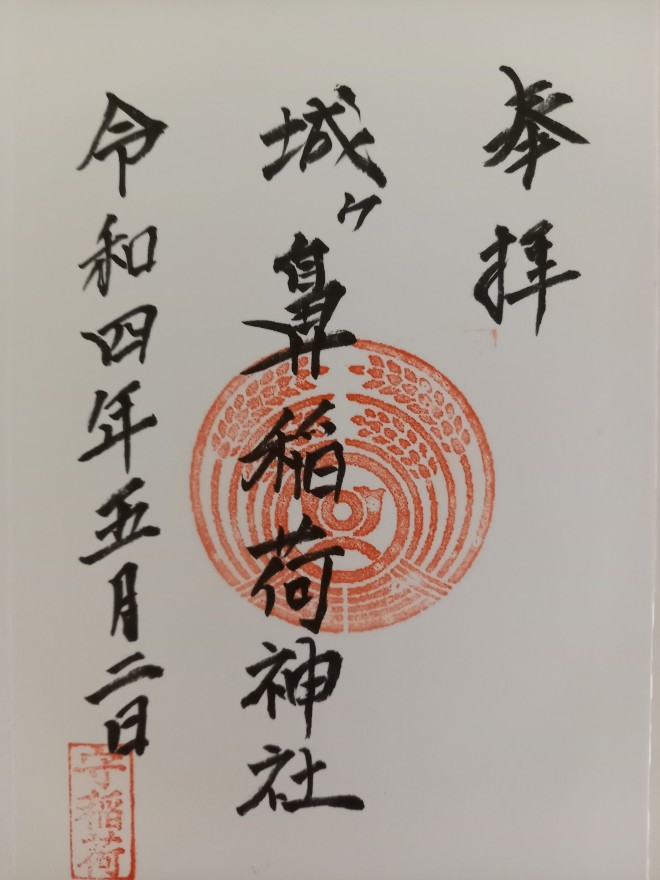 奉拝
城ヶ鼻稲荷神社
令和四年五月二日
守稲荷